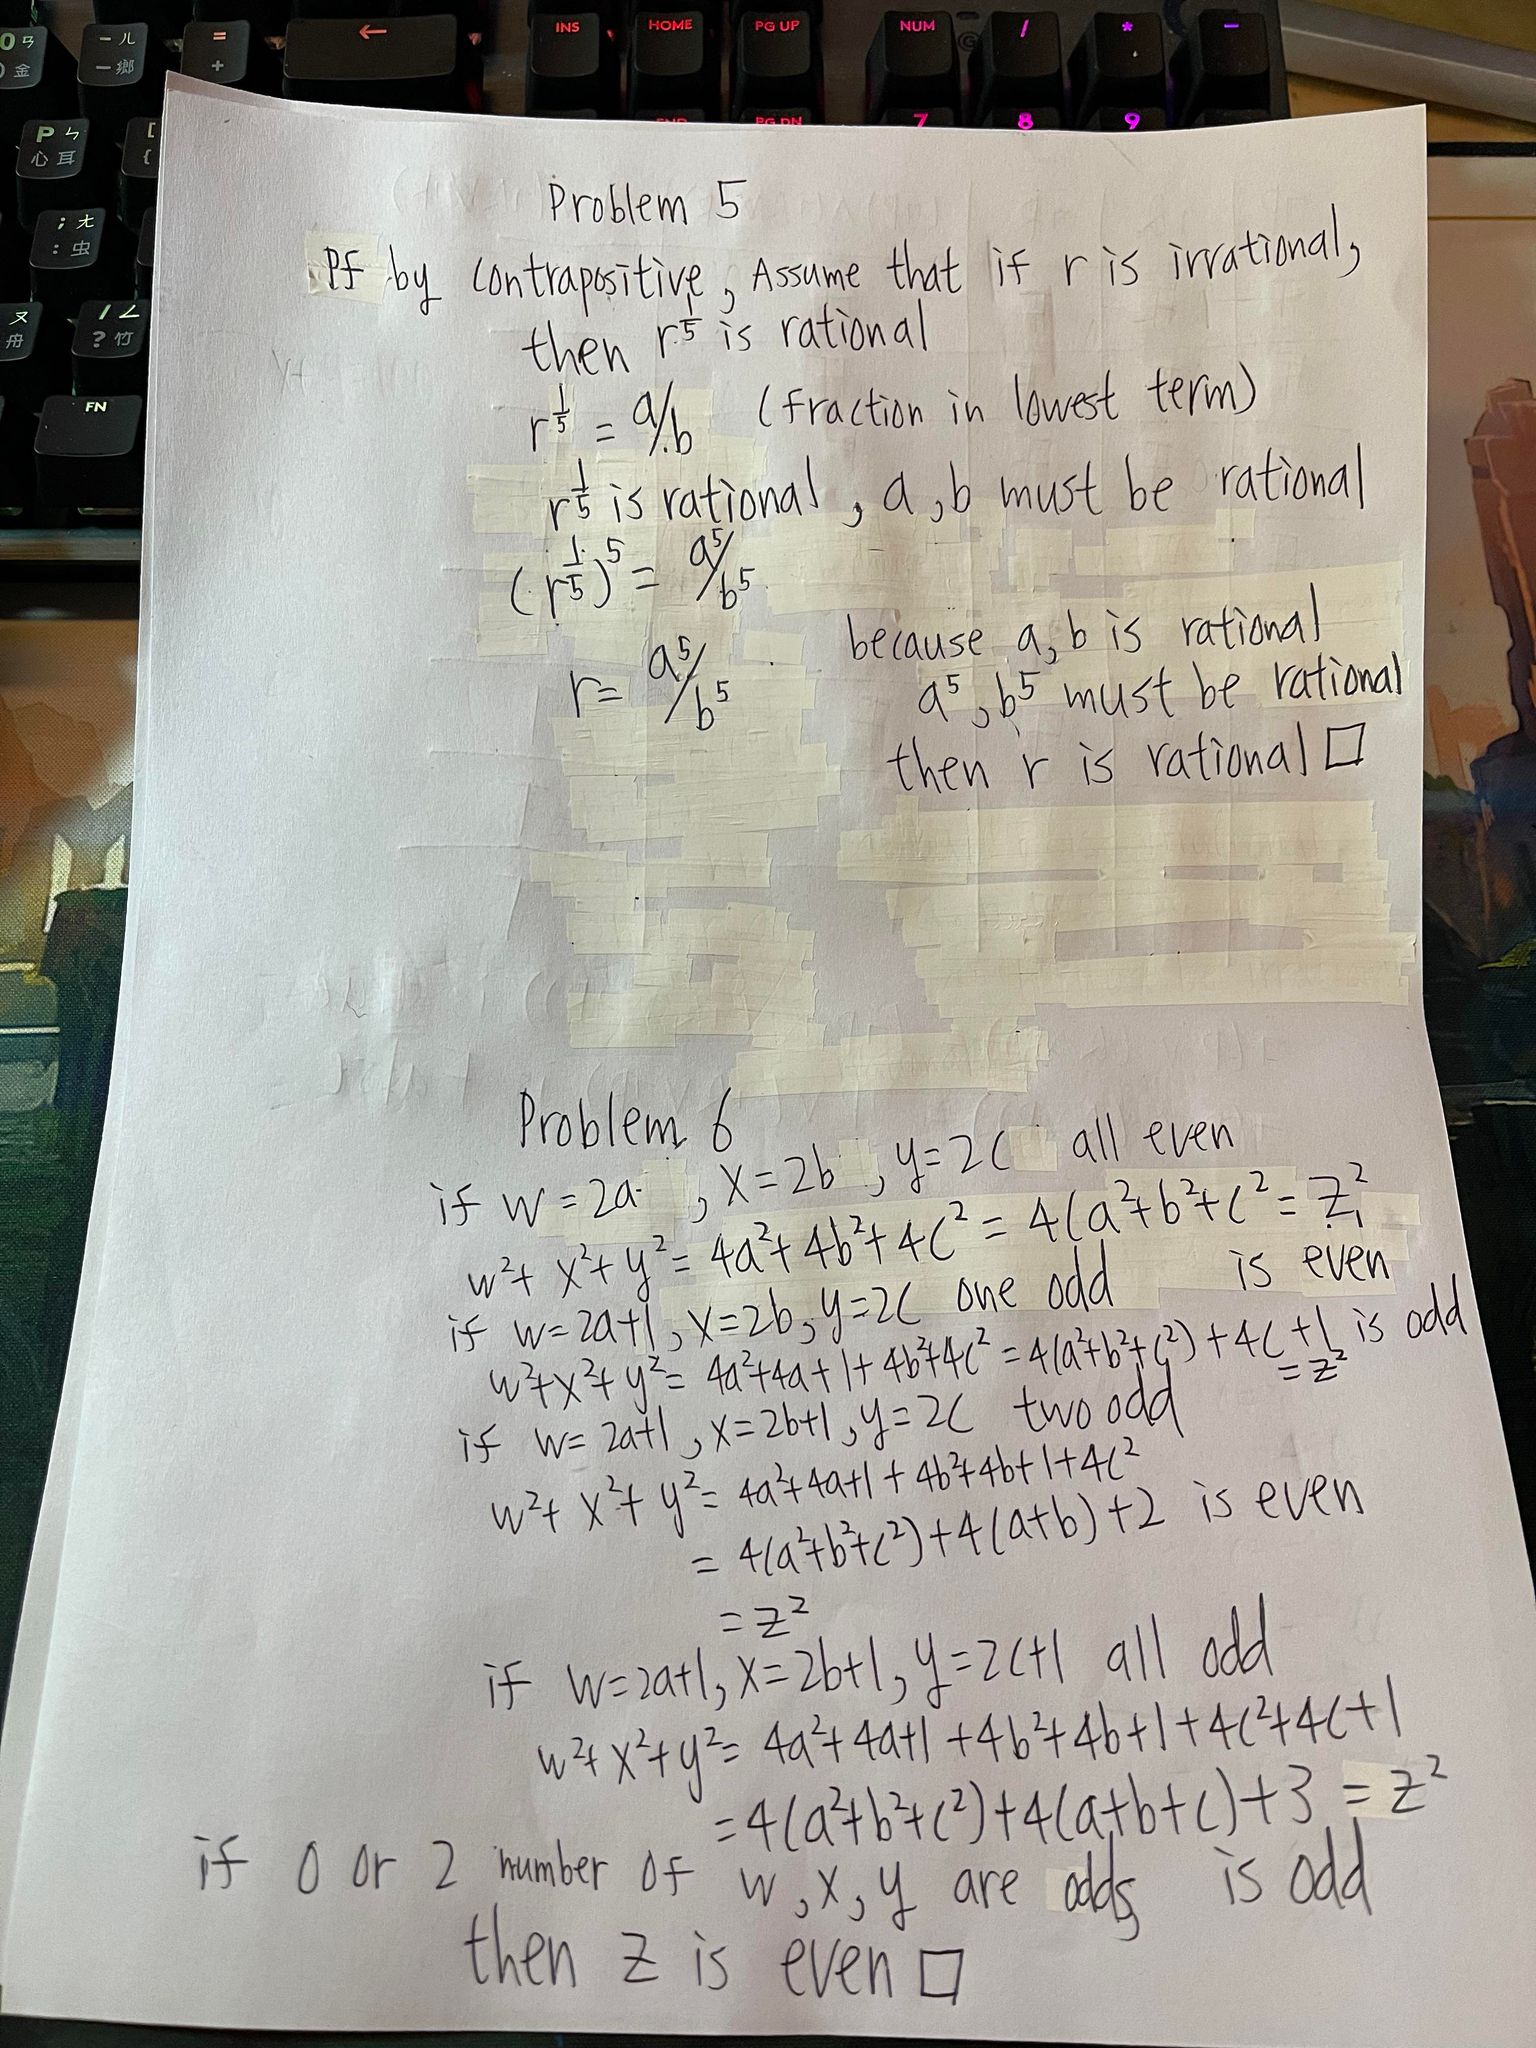 0ㄢ
)金
-ㄦ
一鄉
=
+
←
INS
HOME
PG UP
NUM
/
*
-
Pㄣ
心耳
[
{
END
PG DN
7
8
9
;ㄤ
:虫
ㄡ
舟
/ㄥ
?竹
FN
Problem 5
Pf by contrapositive, Assume that if r is irrational,
then r^{1/5} is rational
r^{1/5} = a/b (fraction in lowest term)
r^{1/5} is rational, a,b must be rational
(r^{1/5})^5 = a^5/b^5
because a,b is rational
r= a^5/b^5 a^5, b^5 must be rational
then r is rational □
Problem 6
if w=2a, x=2b, y=2c all even
w²+x²+y²=4a²+4b²+4c²=4(a²+b²+c²=z²,
is even
if w=2a+1, x=2b, y=2c one odd
w²+x²+y²=4a²+4a+1+4b²+4c²=4(a²+b²+c²)+4c+1 is odd
=z²
if w=2a+1, x=2b+1, y=2c two odd
w²+x²+y²=4a²+4a+1+4b²+4b+1+4c²
=4(a²+b²+c²)+4(a+b)+2 is even
=z²
if w=2a+1, x=2b+1, y=2c+1 all odd
w²+x²+y²=4a²+4a+1+4b²+4b+1+4c²+4c+1
=4(a²+b²+c²)+4(a+b+c)+3=z²
is odd
if 0 or 2 number of w,x,y are odds
then z is even □